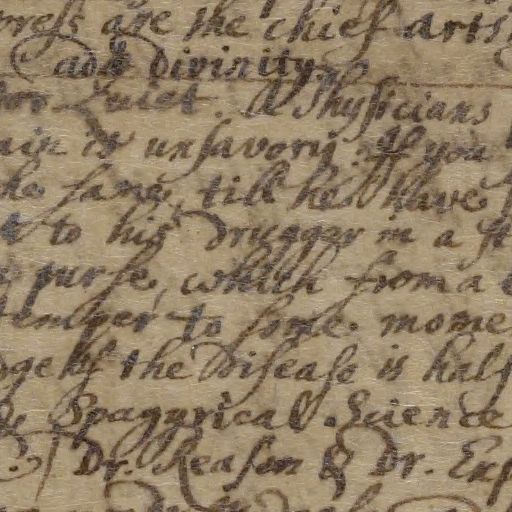 press are the chief arts
add divinity
for Quiet. A Physicians
ain or unsavory. If you
he same, till he have
t to his Drugger in a st
purse, which from a
to some mome
dge of the Disease is half
Spagyrical Science
Dr. Reason & Dr. Exp